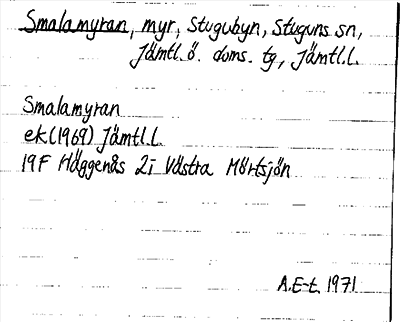 Smalamyran, myr, Stugubyn, Stuguns sn,
Jämtl.ö. doms. tg., Jämtl.l.
Smalamyran
ek(1969) Jämtl.l.
19F Häggenås 2i Västra Mörtsjön
A.E-t. 1971